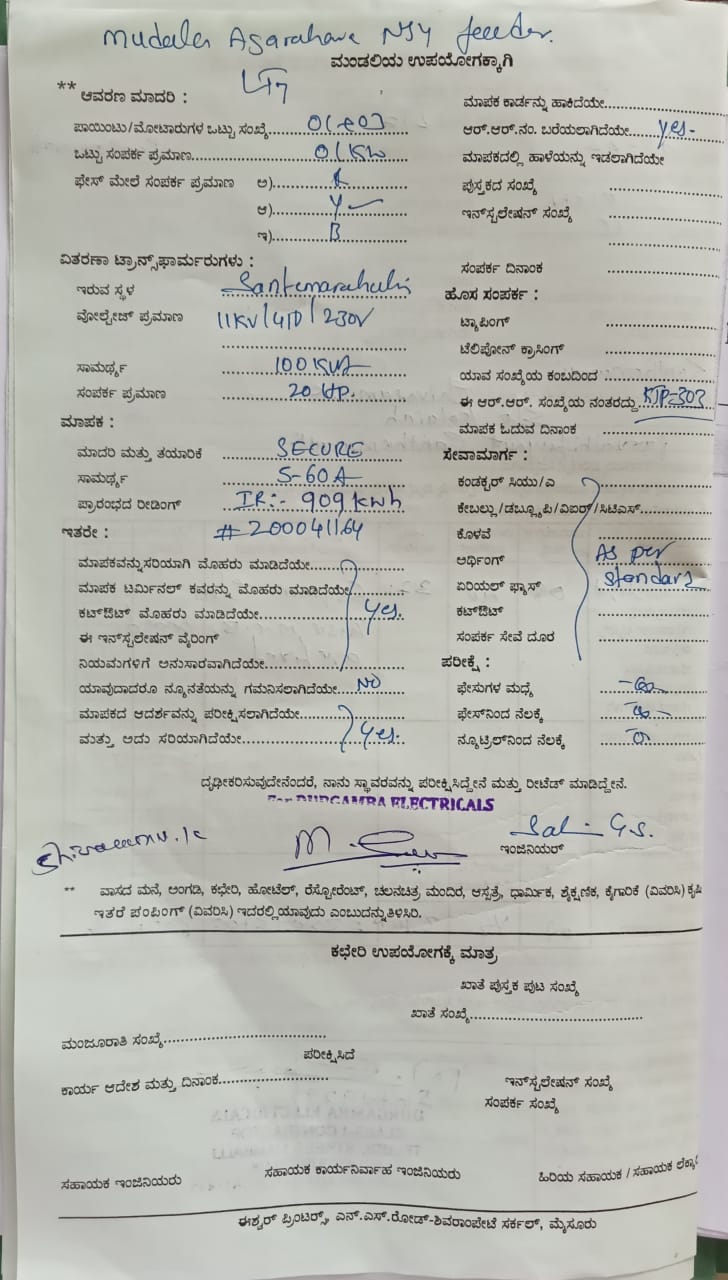 Mudala Agarahara NJY feeder.
ಮಂಡಲಿಯ ಉಪಯೋಗಕ್ಕಾಗಿ
** ಆವರಣ ಮಾದರಿ : LT7
ಪಾಯಿಂಟು/ಮೋಟಾರುಗಳ ಒಟ್ಟು ಸಂಖ್ಯೆ
ಒಟ್ಟು ಸಂಪರ್ಕ ಪ್ರಮಾಣ 01KW
ಫೇಸ್ ಮೇಲೆ ಸಂಪರ್ಕ ಪ್ರಮಾಣ ಅ)
ಆ) Y
ಇ) B
ವಿತರಣಾ ಟ್ರಾನ್ಸ್‌ಫಾರ್ಮರುಗಳು :
ಇರುವ ಸ್ಥಳ Santemarahalli
ವೋಲ್ಟೇಜ್ ಪ್ರಮಾಣ 11KV/410/230V
ಸಾಮರ್ಥ್ಯ 100KVA
ಸಂಪರ್ಕ ಪ್ರಮಾಣ 20 HP.
ಮಾಪಕ :
ಮಾದರಿ ಮತ್ತು ತಯಾರಿಕೆ SECURE
ಸಾಮರ್ಥ್ಯ 5-60A
ಪ್ರಾರಂಭದ ರೀಡಿಂಗ್ IR:- 909 kwh
ಇತರೇ : # 200041164
ಮಾಪಕವನ್ನು ಸರಿಯಾಗಿ ಮೊಹರು ಮಾಡಿದೆಯೇ
ಮಾಪಕ ಟರ್ಮಿನಲ್ ಕವರನ್ನು ಮೊಹರು ಮಾಡಿದೆಯೇ
ಕಟ್‌ಔಟ್ ಮೊಹರು ಮಾಡಿದೆಯೇ yes.
ಈ ಇನ್‌ಸ್ಟಲೇಷನ್ ವೈರಿಂಗ್
ನಿಯಮಗಳಿಗೆ ಅನುಸಾರವಾಗಿದೆಯೇ
ಯಾವುದಾದರೂ ನ್ಯೂನತೆಯನ್ನು ಗಮನಿಸಲಾಗಿದೆಯೇ NO
ಮಾಪಕದ ಆದರ್ಶವನ್ನು ಪರೀಕ್ಷಿಸಲಾಗಿದೆಯೇ
ಮತ್ತು ಅದು ಸರಿಯಾಗಿದೆಯೇ yes.
ಮಾಪಕ ಕಾರ್ಡನ್ನು ಹಾಕಿದೆಯೇ
ಆರ್.ಆರ್.ನಂ. ಬರೆಯಲಾಗಿದೆಯೇ yes-
ಮಾಪಕದಲ್ಲಿ ಹಾಳೆಯನ್ನು ಇಡಲಾಗಿದೆಯೇ
ಪುಸ್ತಕದ ಸಂಖ್ಯೆ
ಇನ್‌ಸ್ಟಲೇಷನ್ ಸಂಖ್ಯೆ
ಸಂಪರ್ಕ ದಿನಾಂಕ
ಹೊಸ ಸಂಪರ್ಕ :
ಟ್ಯಾಪಿಂಗ್
ಟೆಲಿಪೋನ್ ಕ್ರಾಸಿಂಗ್
ಯಾವ ಸಂಖ್ಯೆಯ ಕಂಬದಿಂದ
ಈ ಆರ್.ಆರ್. ಸಂಖ್ಯೆಯ ನಂತರದ್ದು KJP-303
ಮಾಪಕ ಓದುವ ದಿನಾಂಕ
ಸೇವಾಮಾರ್ಗ :
ಕಂಡಕ್ಟರ್ ಸಿಯು/ಎ
ಕೇಬಲ್ಲು/ಡಬ್ಲ್ಯೂಪಿ/ವಿಐಆರ್/ಸಿಟಿಎಸ್
ಕೊಳವೆ
ಅರ್ಥಿಂಗ್ As per
ಏರಿಯಲ್ ಫ್ಯೂಸ್ standard
ಕಟ್‌ಔಟ್
ಸಂಪರ್ಕ ಸೇವೆ ದೂರ
ಪರೀಕ್ಷೆ :
ಫೇಸುಗಳ ಮಧ್ಯೆ
ಫೇಸ್‌ನಿಂದ ನೆಲಕ್ಕೆ
ನ್ಯೂಟ್ರಿಲ್‌ನಿಂದ ನೆಲಕ್ಕೆ
ದೃಢೀಕರಿಸುವುದೇನೆಂದರೆ, ನಾನು ಸ್ಥಾವರವನ್ನು ಪರೀಕ್ಷಿಸಿದ್ದೇನೆ ಮತ್ತು ರೀಟೆಡ್ ಮಾಡಿದ್ದೇನೆ.
For DURGAMBA ELECTRICALS
ಇಂಜಿನಿಯರ್
** ವಾಸದ ಮನೆ, ಅಂಗಡಿ, ಕಛೇರಿ, ಹೋಟೆಲ್, ರೆಸ್ಟೋರೆಂಟ್, ಚಲನಚಿತ್ರ ಮಂದಿರ, ಆಸ್ಪತ್ರೆ, ಧಾರ್ಮಿಕ, ಶೈಕ್ಷಣಿಕ, ಕೈಗಾರಿಕೆ (ವಿವರಿಸಿ) ಕೃಷಿ
ಇತರೆ ಪಂಪಿಂಗ್ (ವಿವರಿಸಿ) ಇದರಲ್ಲಿ ಯಾವುದು ಎಂಬುದನ್ನು ತಿಳಿಸಿರಿ.
ಕಛೇರಿ ಉಪಯೋಗಕ್ಕೆ ಮಾತ್ರ
ಖಾತೆ ಪುಸ್ತಕ ಪುಟ ಸಂಖ್ಯೆ
ಖಾತೆ ಸಂಖ್ಯೆ
ಮಂಜೂರಾತಿ ಸಂಖ್ಯೆ
ಪರೀಕ್ಷಿಸಿದೆ
ಕಾರ್ಯ ಆದೇಶ ಮತ್ತು ದಿನಾಂಕ
ಇನ್‌ಸ್ಟಲೇಷನ್ ಸಂಖ್ಯೆ
ಸಂಪರ್ಕ ಸಂಖ್ಯೆ
ಸಹಾಯಕ ಇಂಜಿನಿಯರು ಸಹಾಯಕ ಕಾರ್ಯನಿರ್ವಾಹ ಇಂಜಿನಿಯರು ಹಿರಿಯ ಸಹಾಯಕ / ಸಹಾಯಕ
ಈಶ್ವರ್ ಪ್ರಿಂಟರ್ಸ್, ಎನ್.ಎಸ್.ರೋಡ್-ಶಿವರಾಂಪೇಟೆ ಸರ್ಕಲ್, ಮೈಸೂರು